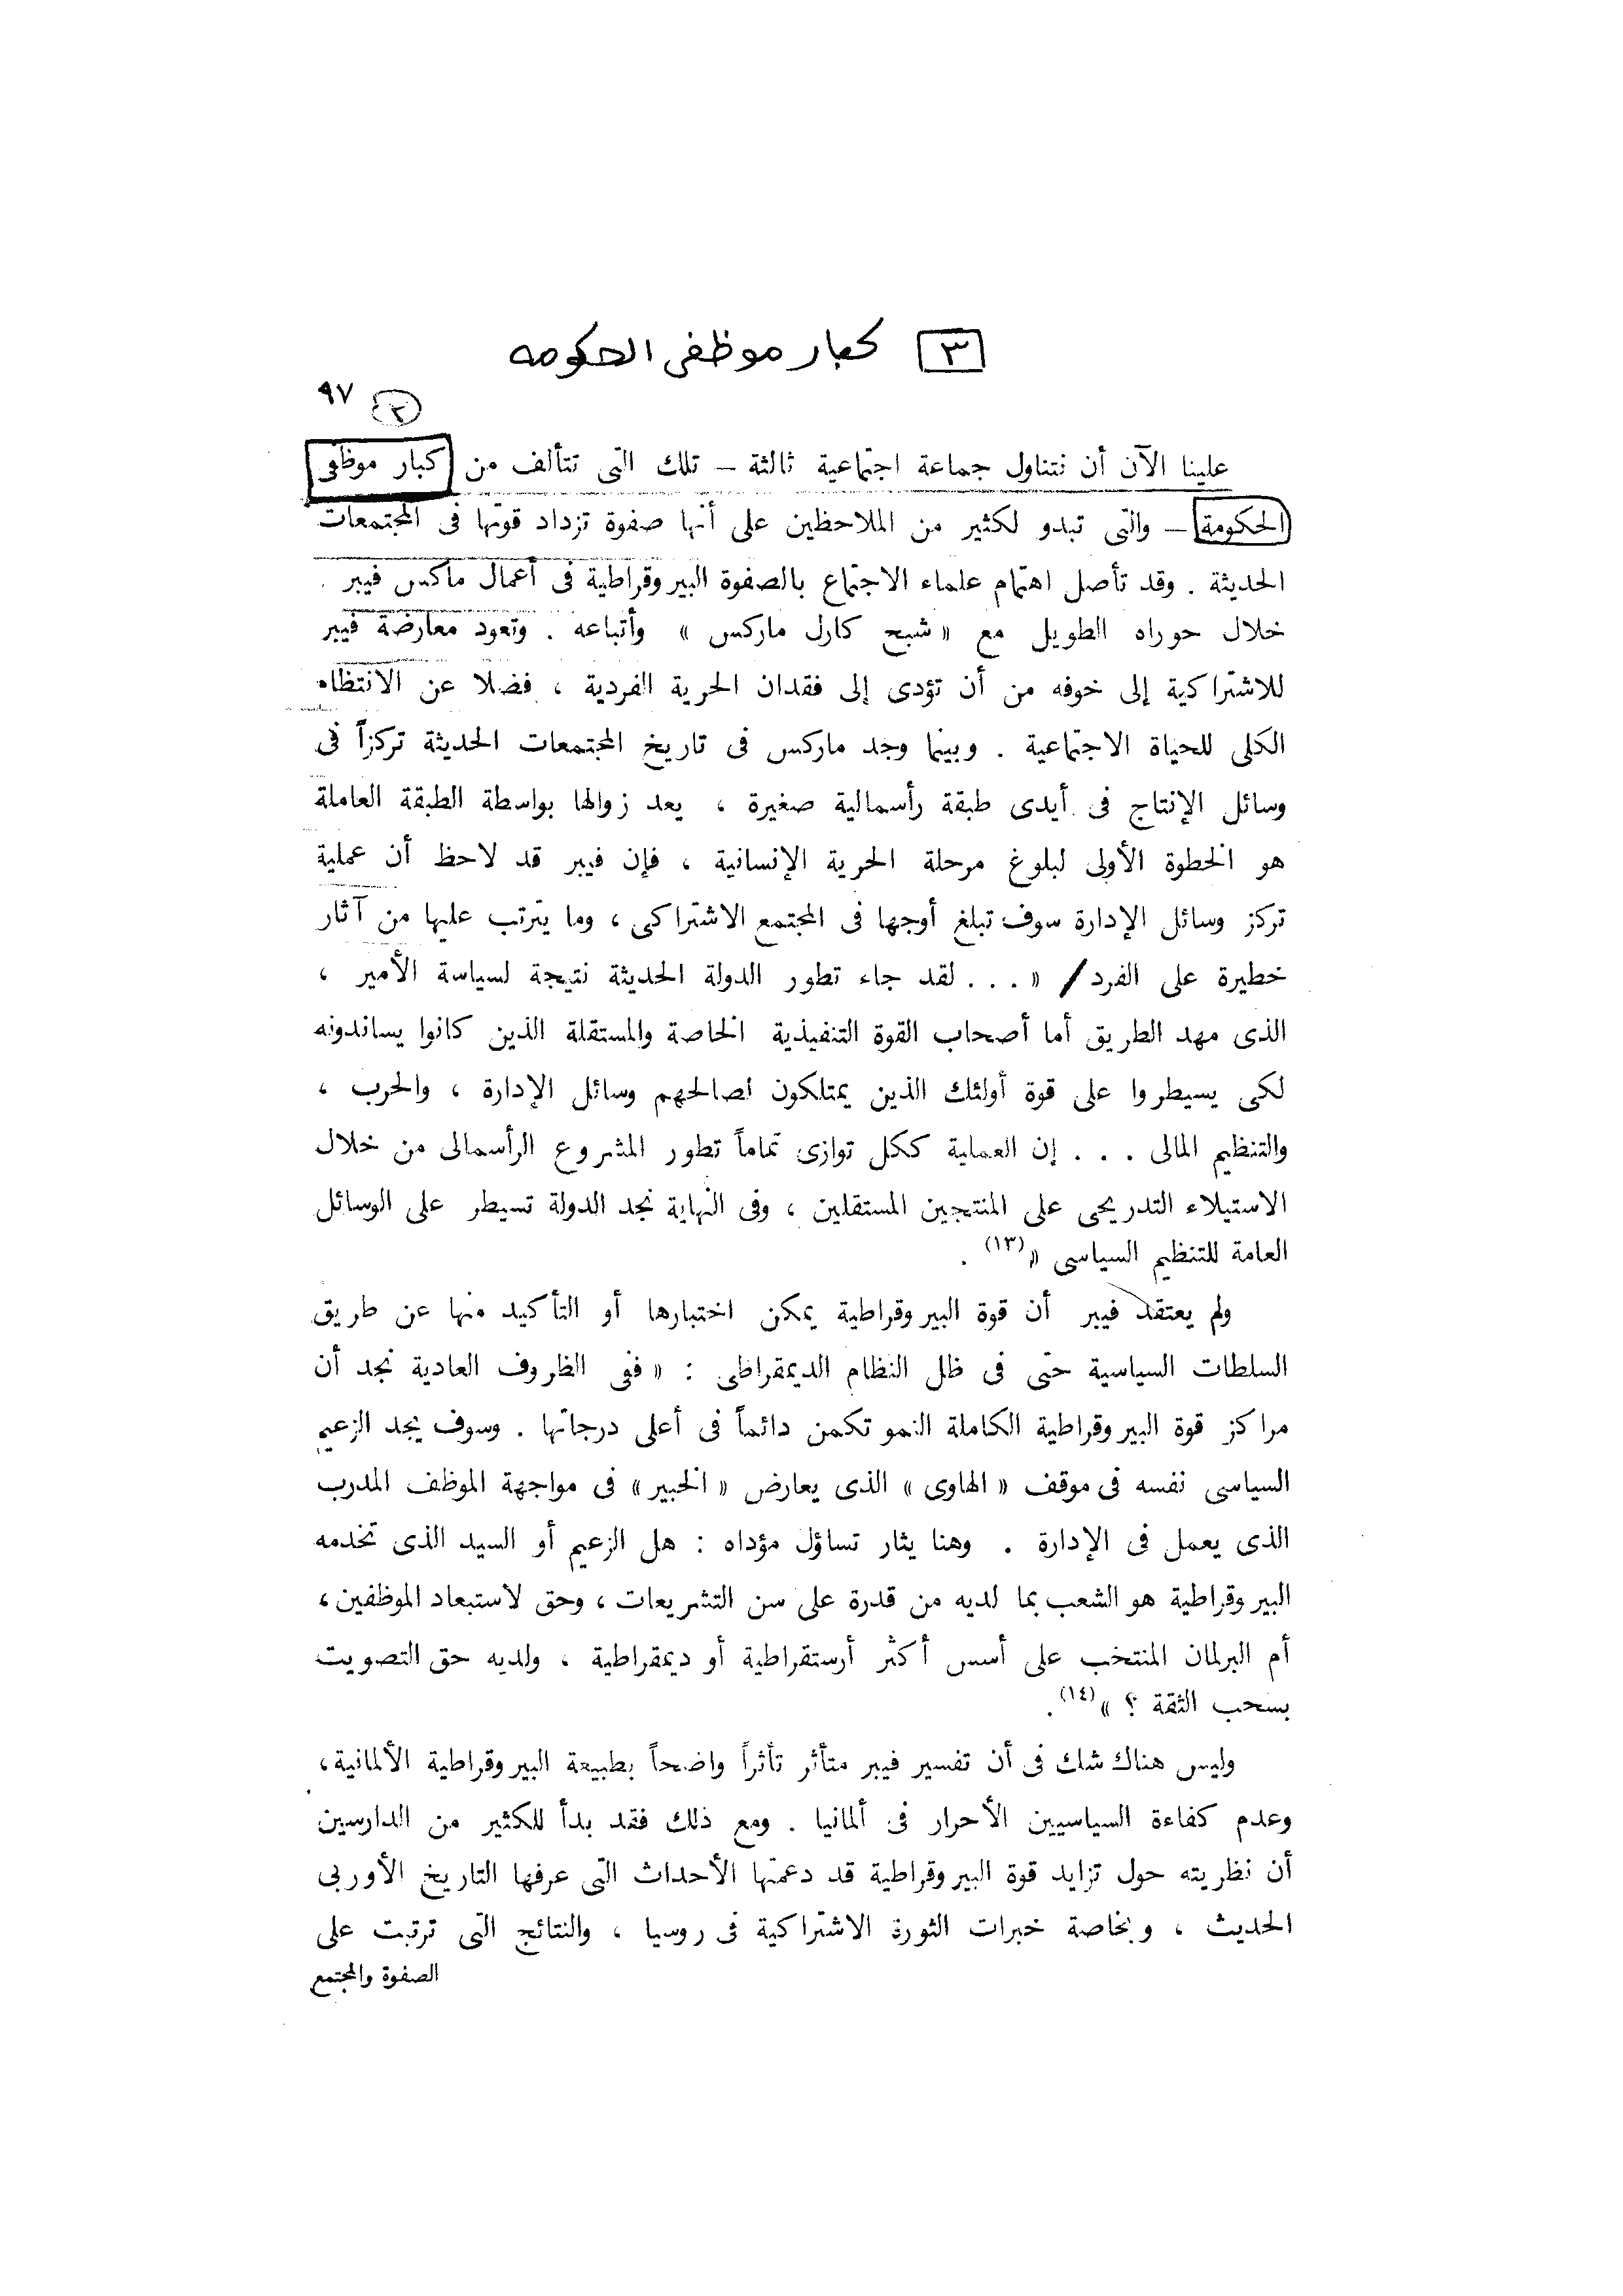 ٣ كبار موظفى الحكومه
٩٧
٢
علينا الآن أن نتناول جماعة اجتماعية ثالثة – تلك التى تتألف من كبار موظفى
الحكومة – والتى تبدو لكثير من الملاحظين على أنها صفوة تزداد قوتها فى المجتمعات
الحديثة . وقد تأصل اهتمام علماء الاجتماع بالصفوة البيروقراطية فى أعمال ماكس فيبر .
خلال حوراه الطويل مع « شبح كارل ماركس » وأتباعه . وتعود معارضة فيبر
للاشتراكية إلى خوفه من أن تؤدى إلى فقدان الحرية الفردية ، فضلا عن الانتظام
الكلى للحياة الاجتماعية . وبينما وجد ماركس فى تاريخ المجتمعات الحديثة تركزاً فى
وسائل الإنتاج فى أيدى طبقة رأسمالية صغيرة ، يعد زوالها بواسطة الطبقة العاملة
هو الخطوة الأولى لبلوغ مرحلة الحرية الإنسانية ، فإن فيبر قد لاحظ أن عملية
تركز وسائل الإدارة سوف تبلغ أوجها فى المجتمع الاشتراكى ، وما يترتب عليها من آثار
خطيرة على الفرد / « . . . لقد جاء تطور الدولة الحديثة نتيجة لسياسة الأمير ،
الذى مهد الطريق أما أصحاب القوة التنفيذية الخاصة والمستقلة الذين كانوا يساندونه
لكى يسيطروا على قوة أولئك الذين يمتلكون لصالحهم وسائل الإدارة ، والحرب ،
والتنظيم المالى . . . إن العملية ككل توازى تماماً تطور المشروع الرأسمالى من خلال
الاستيلاء التدريجى على المنتجين المستقلين ، وفى النهاية نجد الدولة تسيطر على الوسائل
العامة للتنظيم السياسى »(١٣) .
ولم يعتقد فيبر أن قوة البيروقراطية يمكن اختبارها أو التأكيد منها عن طريق
السلطات السياسية حتى فى ظل النظام الديمقراطى : « ففى الظروف العادية نجد أن
مراكز قوة البيروقراطية الكاملة النمو تكمن دائماً فى أعلى درجاتها . وسوف يجد الزعيم
السياسى نفسه فى موقف « الهاوى » الذى يعارض « الخبير » فى مواجهة الموظف المدرب
الذى يعمل فى الإدارة . وهنا يثار تساؤل مؤداه : هل الزعيم أو السيد الذى تخدمه
البيروقراطية هو الشعب بما لديه من قدرة على سن التشريعات ، وحق لاستبعاد الموظفين ،
أم البرلمان المنتخب على أسس أكثر أرستقراطية أو ديمقراطية ، ولديه حق التصويت
بسحب الثقة ؟ »(١٤) .
وليس هناك شك فى أن تفسير فيبر متأثر تأثراً واضحاً بطبيعة البيروقراطية الألمانية ،
وعدم كفاءة السياسيين الأحرار فى ألمانيا . ومع ذلك فقد بدأ للكثير من الدارسين
أن نظريته حول تزايد قوة البيروقراطية قد دعمتها الأحداث التى عرفها التاريخ الأوربى
الحديث ، وبخاصة خبرات الثورة الاشتراكية فى روسيا ، والنتائج التى ترتبت على
الصفوة والمجتمع